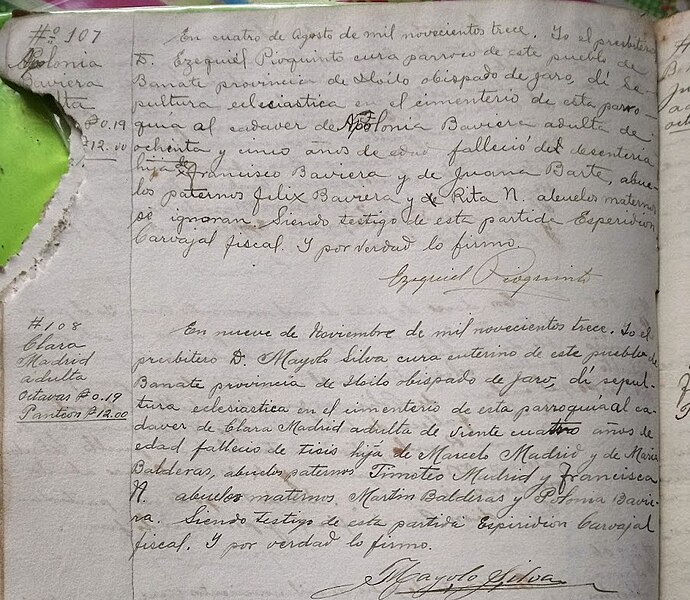 #º 107
Apolonia
Baviera
adulta
₱0.19
₱12.00
En cuatro de Agosto de mil novecientos trece. Yo el presbitero
D. Ezequiel Pioquinto cura parroco de este pueblo de
Banate provincia de Iloilo obispado de Jaro, dí se-
pultura eclesiastica en el cimenterio de esta parro-
quia al cadaver de Apolonia Baviera adulta de
ochenta y cinco años de edad falleció de desenteria
hija de Francisco Baviera y de Juana Barte, abue-
los paternos Felix Baviera y de Rita N. abuelos maternos
se ignoran. Siendo testigo de esta partida Esperidion
Carvajal fiscal. Y por verdad lo firmo.
Ezequiel Pioquinto
#108
Clara
Madrid
adulta
Octavas ₱0.19
Panteon ₱12.00
En nueve de Noviembre de mil novecientos trece. Yo el
presbitero D. Mayolo Silva cura enterino de este pueblo de
Banate provincia de Iloilo obispado de Jaro, dí sepul-
tura eclesiastica en el cimenterio de esta parroquia al ca-
daver de Clara Madrid adulta de viente cuatro años de
edad fallecio de tisis hija de Marcelo Madrid y de Maria
Balderas, abuelos paternos Timoteo Madrid y Francisca
N. abuelos maternos Martin Balderas y Polonia Bavie-
ra. Siendo testigo de esta partida Espiridion Carvajal
fiscal. Y por verdad lo firmo.
Mayolo Silva